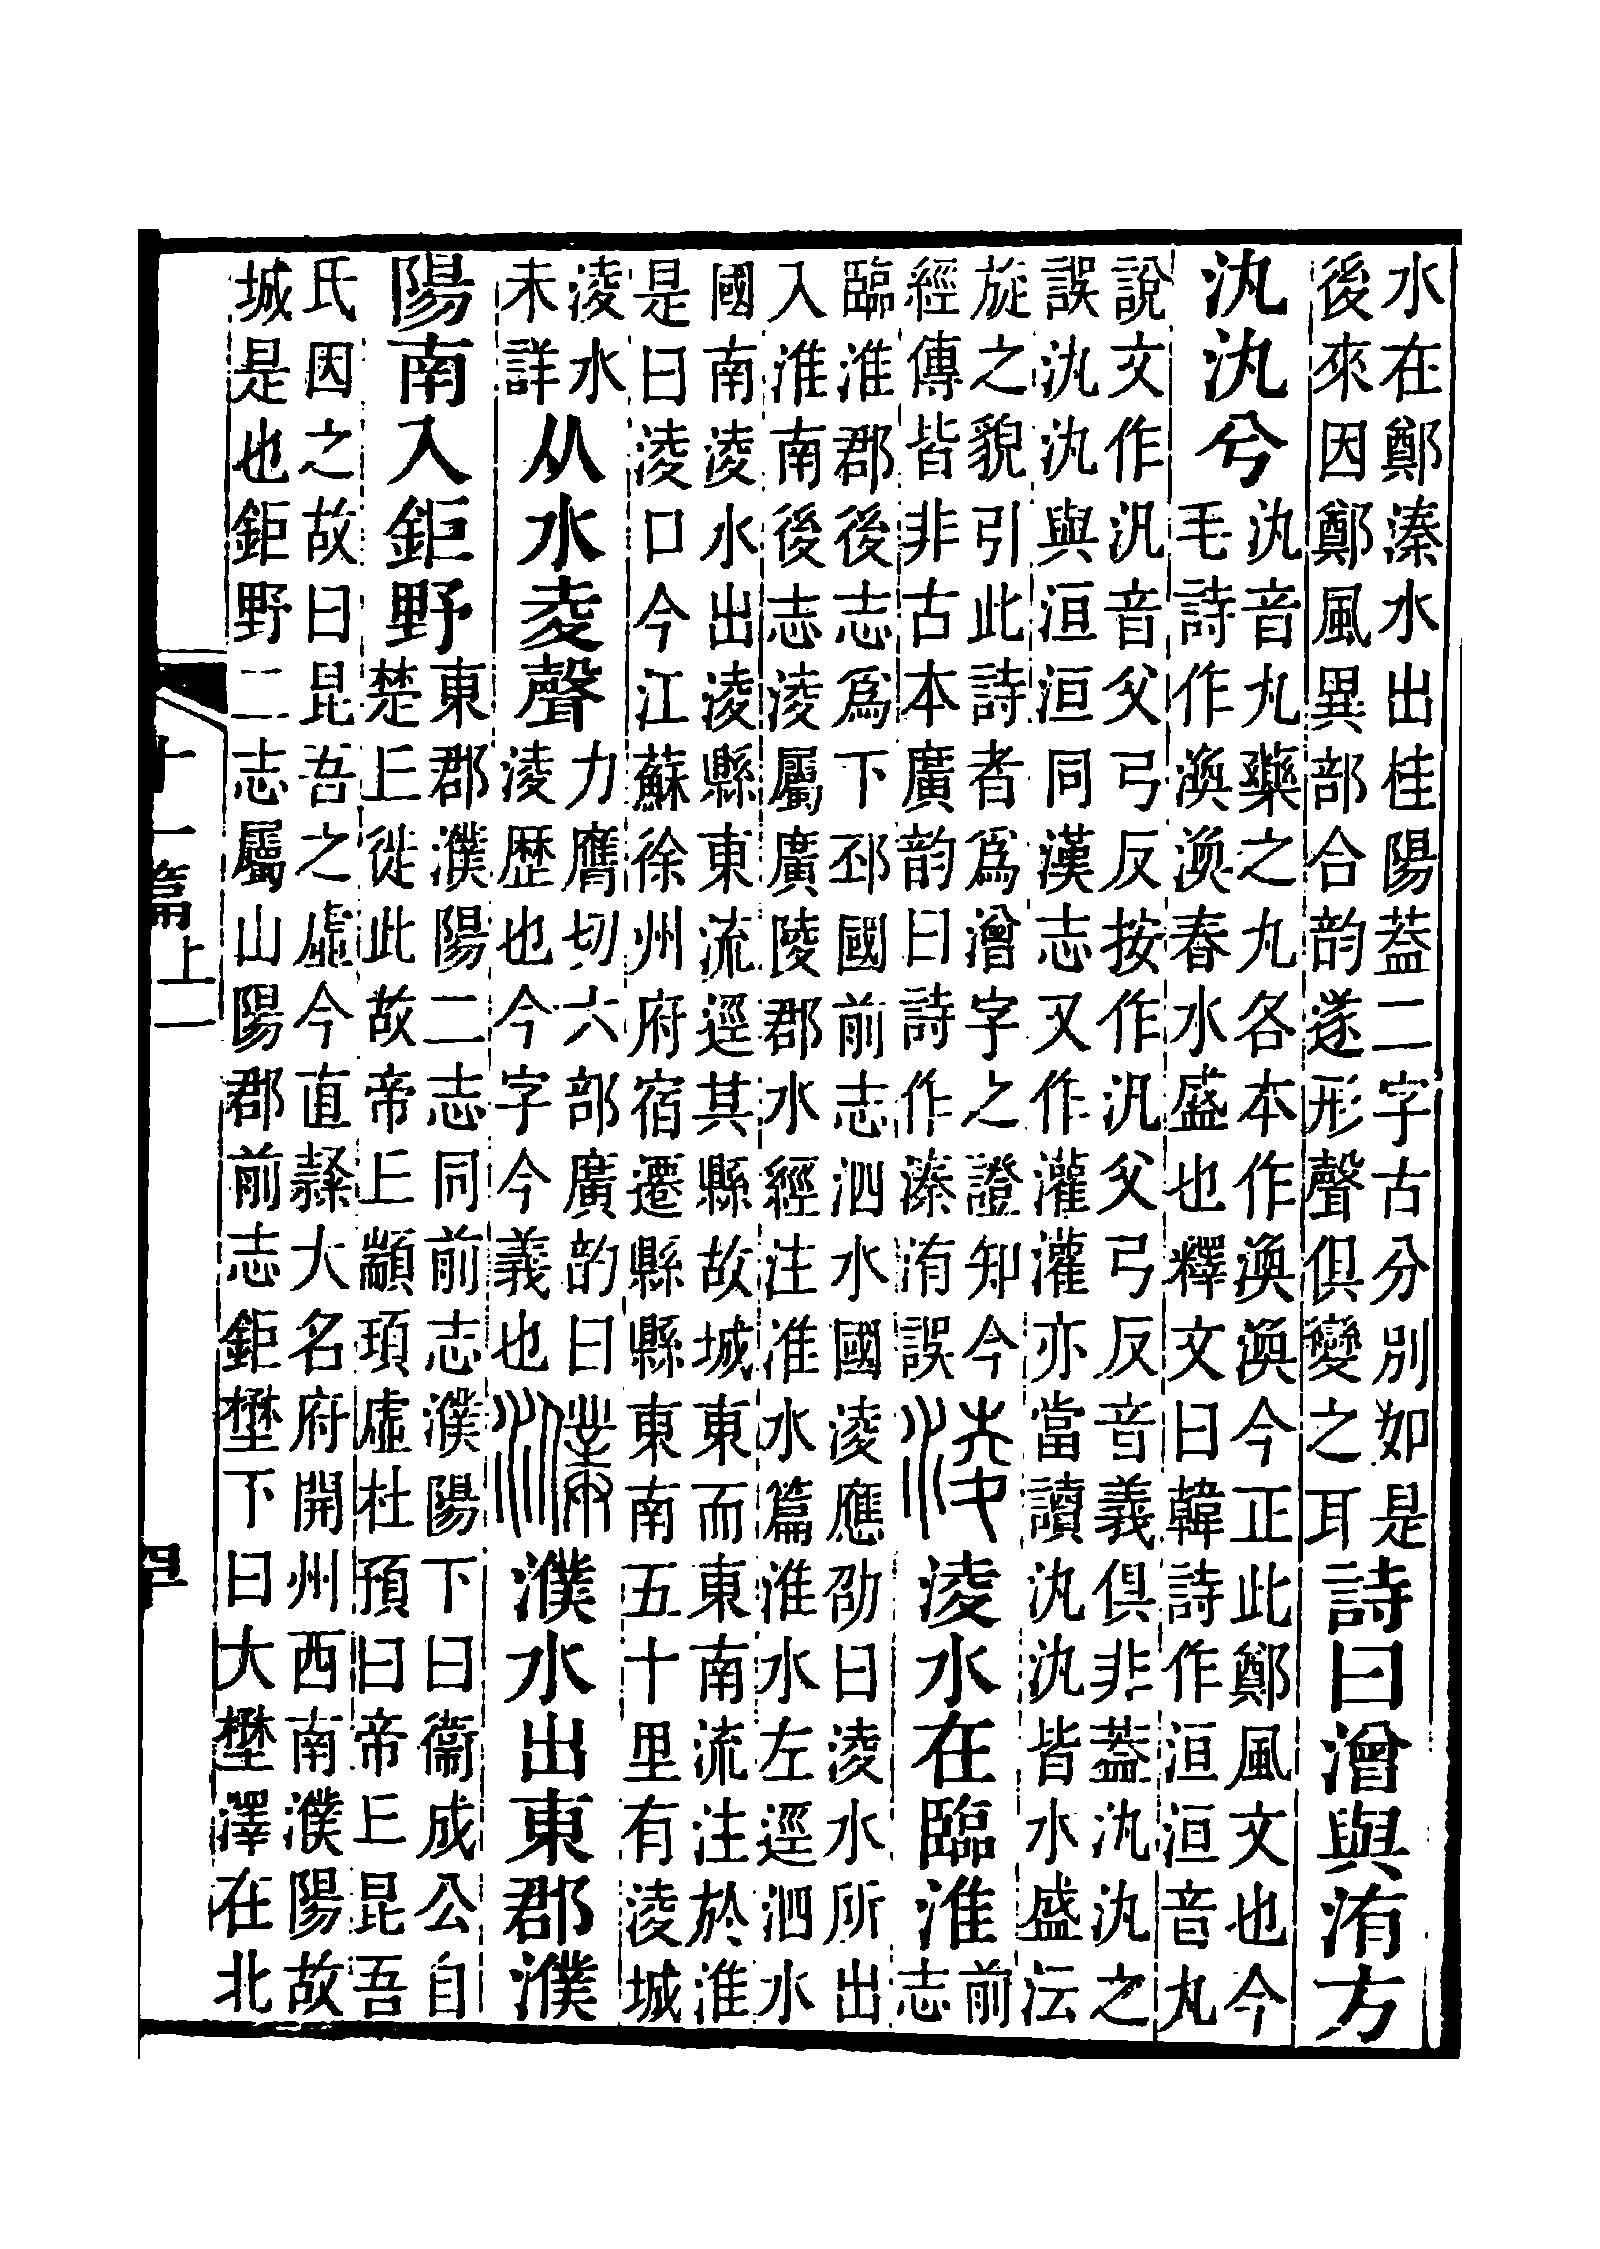 水在鄭溱水出桂陽葢二字古分別如是
後來因鄭風異部合韵遂形聲俱變之耳
詩曰潧與洧方
汍汍兮
汍音丸藥之丸各本作渙渙今正此鄭風文也今
毛詩作渙渙春水盛也釋文曰韓詩作洹洹音丸
說文作汎音父弓反按作汎父弓反音義俱非葢汍汍之
誤汍汍與洹洹同漢志又作灌灌亦當讀汍汍皆水盛沄
旋之貌引此詩者爲潧字之證知今
經傳皆非古本廣韵曰詩作溱洧誤
淩
淩水在臨淮
前
志
臨淮郡後志爲下邳國前志泗水國淩應劭曰淩水所出
入淮南後志淩屬廣陵郡水經注淮水篇淮水左逕泗水
國南淩水出淩縣東流逕其縣故城東而東南流注於淮
是曰淩口今江蘇徐州府宿遷縣縣東南五十里有淩城
淩水
未詳
从水夌聲
力膺切六部廣韵曰
淩歴也今字今義也
濮
濮水出東郡濮
陽南入鉅野
東郡濮陽二志同前志濮陽下曰衞成公自
楚丘徙此故帝丘顓頊虛杜預曰帝丘昆吾
氏因之故曰昆吾之虛今直隸大名府開州西南濮陽故
城是也鉅野二志屬山陽郡前志鉅壄下曰大壄澤在北
十一篇上一